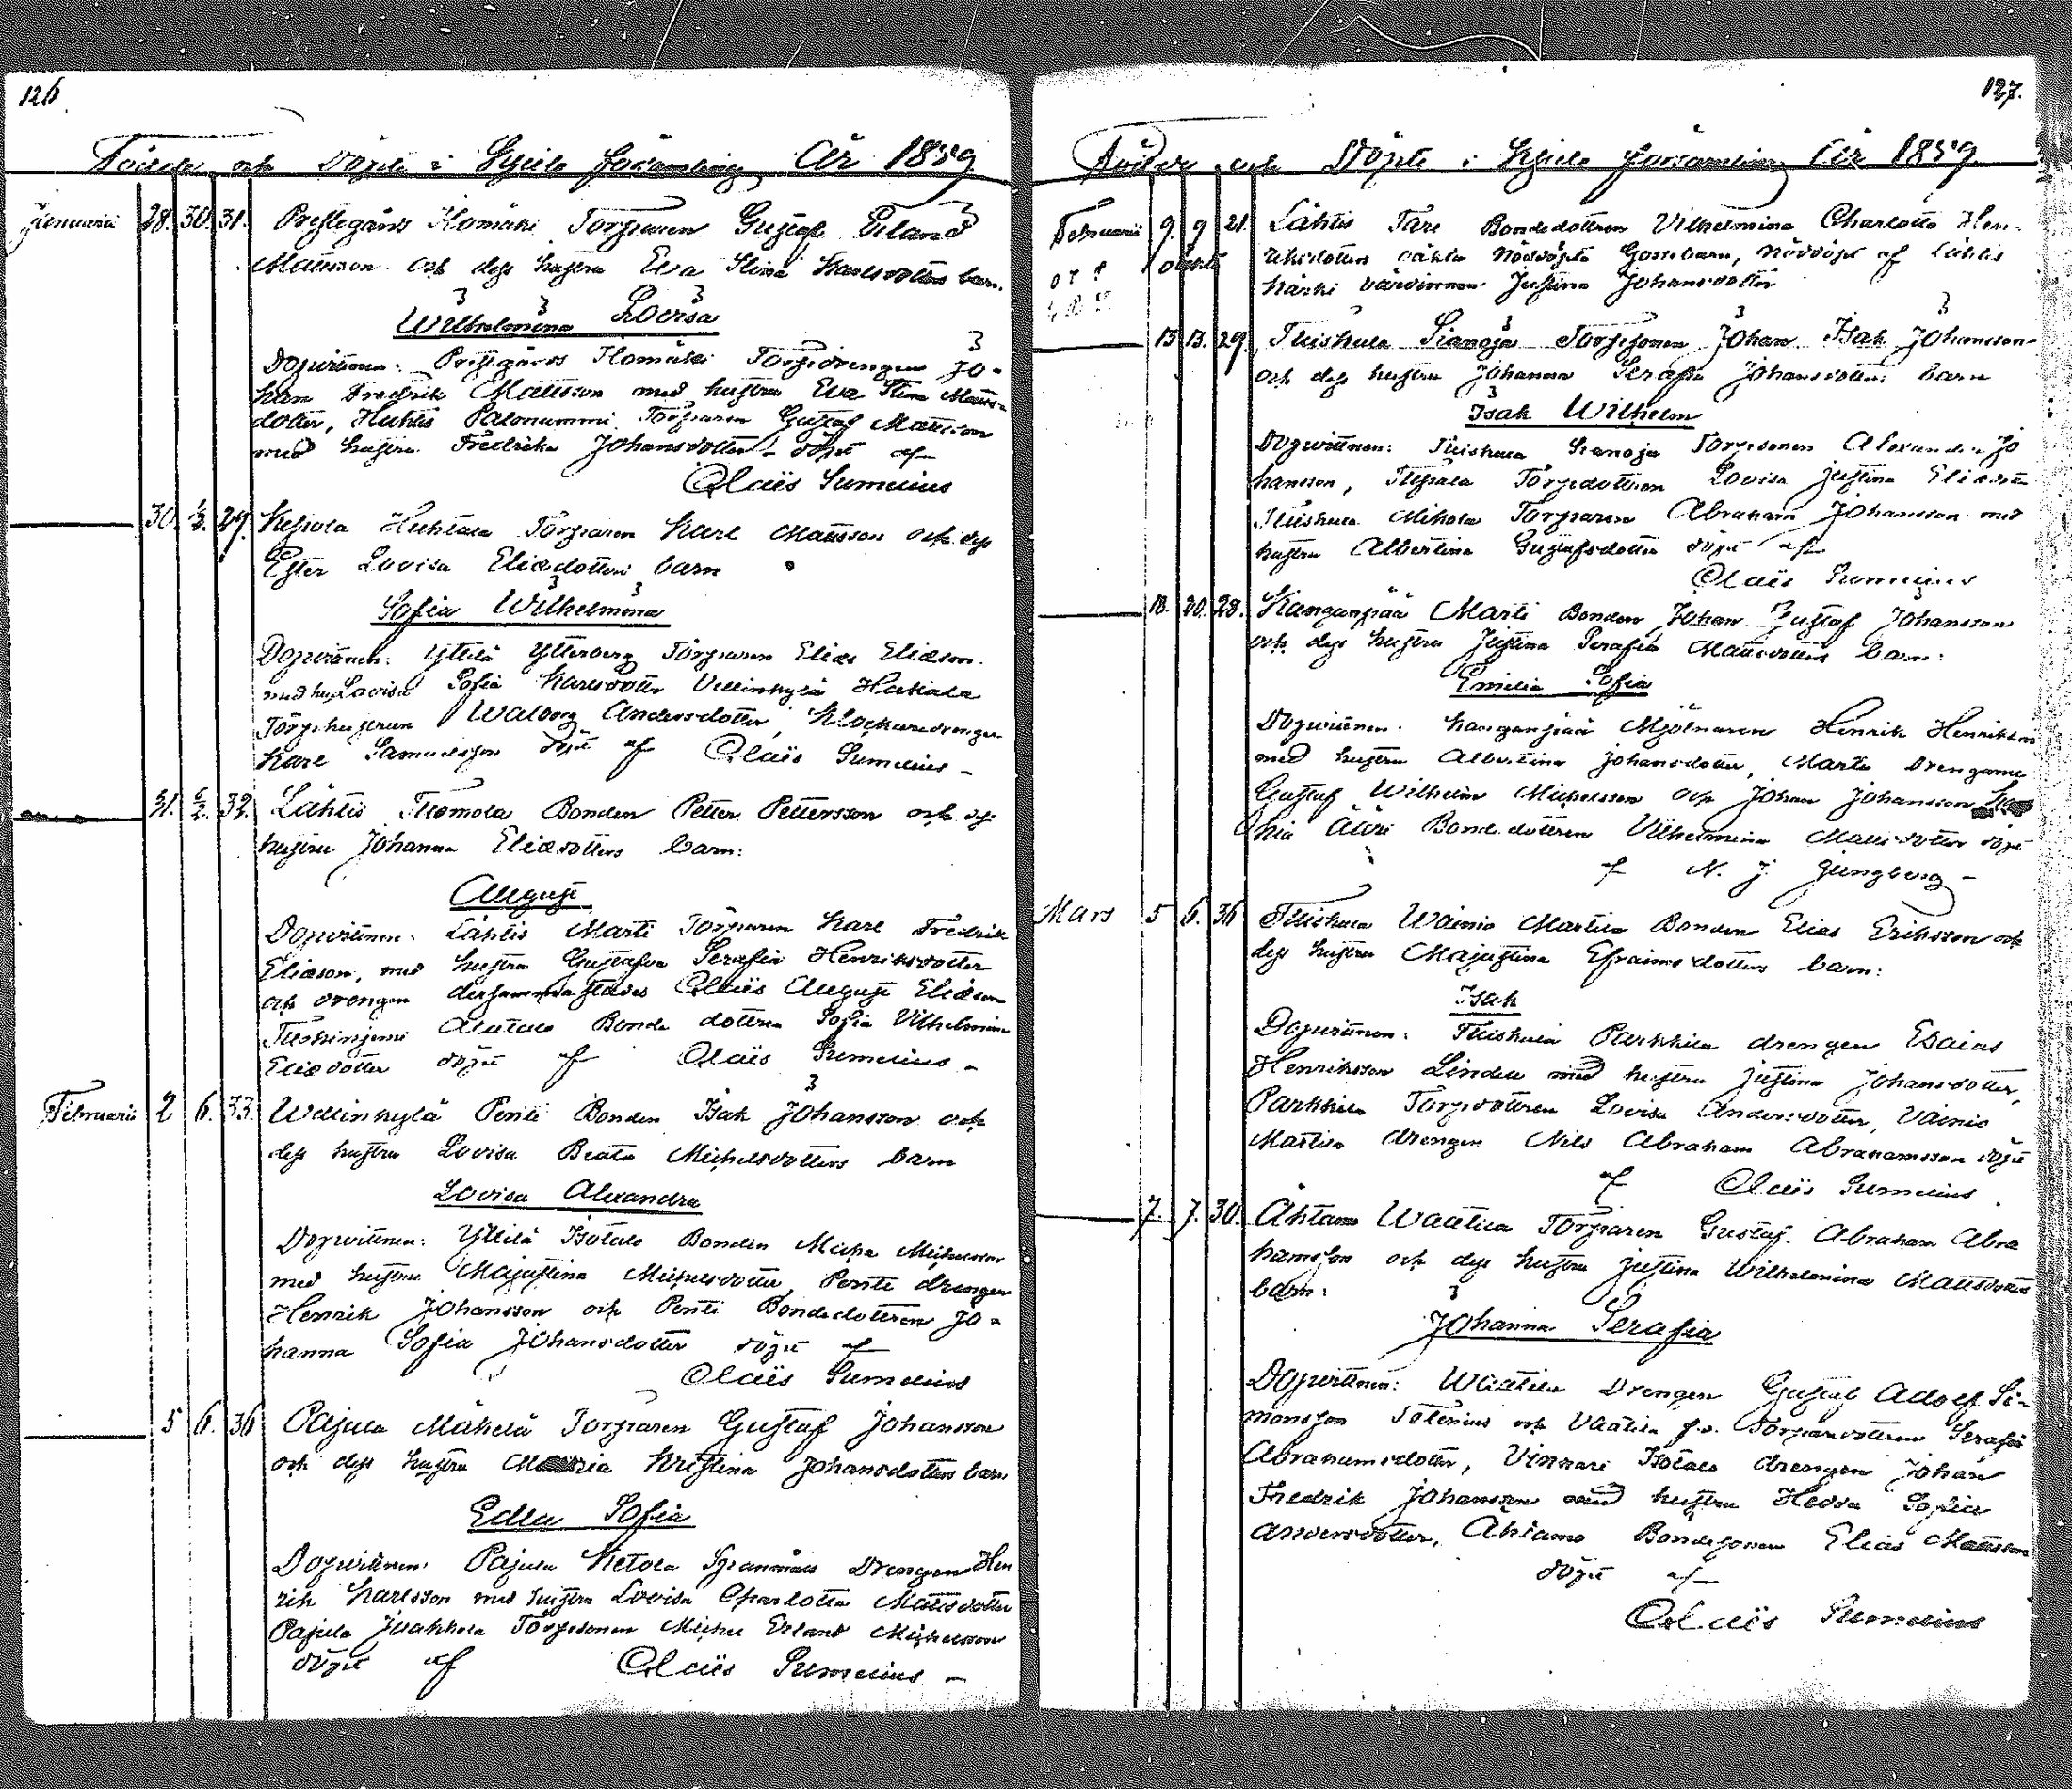 126
Födde och Döpte i Kjulo församling År 1859
Januarii 28. 30. 31. Prestegårds Komäki Torparen Gustaf Erland
Mattsson och dess hustru Eva Stina Karlsdotters barn.
Wilhelmina Lovisa
Dopvittnen: Prestgårds Komäki Torpdrengen Jo-
han Fredrik Mattsson med hustru Eva Stina Matts-
dotter, Huhtis Palonummi Torparen Gustaf Mattsson
med hustru Fredrika Johansdotter - döpt af
Claës Sumelius
30. 1/2. 27. Huhtala Torparen Karl Mattsson och dess
Ester Lovisa Eliædotters barn
Sofia Wilhelmina
Dopvittnen: Yttilä Ytterberg Torparen Elias Eliæson.
med hu. Lovisa Sofia Karlsdotter Vellinkylä Hakala
Torpehustrun Walborg Andersdotter, Klockaredrengen
Karl Samuelsson döpt af Claës Sumelius -
31. 6/2. 32. Lähtis Tuomola Bonden Petter Pettersson och dess
hustru Johanna Eliædotters barn:
August
Dopvittnen: Lähtis Marti Torparen Karl Fredrik
Eliæson, med hustru Gustafva Serafia Henriksdotter
och drengen dersammastädes Claës August Eliæson
Bonde dottren Sofia Vilhelmina
Eliædotter döpt af Claës Sumelius -
Februarii 2 6. 33. Wellinkylä Penti Bonden Isak Johansson och
dess hustru Lovisa Beata Michelsdotters barn
Lovisa Alexandra
Dopvittnen: Yttilä Isotalo Bonden Michel Michelsson
med hustru Majastina Michelsdotter, Penti drengen
Henrik Johansson och Penti Bondedottren Jo-
hanna Sofia Johansdotter döpt af
Claës Sumelius
5 6. 36 Pajula Mäkelä Torparen Gustaf Johansson
och dess hustru Maria Kristina Johansdotters barn
Edla Sofia
Dopvittnen: Pajula Ketola Drengen Hen
rik Karlsson med hustru Lovisa Charlotta Mattsdotter
Pajula Jaakkola Torpsonen Michel Erland Michelsson
döpt af Claës Sumelius -
127.
Födde och Döpte i Kjulo församling År 1859
Februarii 9. 9 21. Lähtis Tare Bondedottren Vilhelmina Charlotta Hen-
riksdotters oäkta Nöddöpta Gossebarn, nöddöpt af Lähtis
Härki värdinnan Justina Johansdotter
oäkta
13 13. 29. Tuiskula Torpsonen Johan Isak Johansson
och dess hustru Johanna Serafia Johansdotters barn
Isak Wilhelm
Dopvittnen: Tuiskula Torpsonen Alexander Jo
hansson, Torpdottren Lovisa Justina Eliædotter
Tuiskula Mikola Torparen Abraham Johansson med
hustru Albertina Gustafsdotter döpt af
Claës Sumelius
18. 20. 28. Kanganpää Marti Bonden Johan Gustaf Johansson
och dess hustru Justina Serafia Mattsdotters barn:
Emilia Sofia
Dopvittnen: Kanganpää Mjölnaren Henrik Henriksson
med hustru Albertina Johansdotter, Marti Drengarne
Gustaf Wilhelm Michelsson och Johan Johansson
Bondedottren Vilhelmina Mattsdotter döpt
af N. J. Ljungberg -
Mars 5 6. 36 Tuiskula Wainio Martila Bonden Elias Eriksson och
dess hustru Majastina Efraimsdotters barn:
Isak
Dopvittnen: Tuiskula Parkkila drengen Esaias
Henriksson Lindu med hustru Justina Johansdotter,
Parkkila Torpdottren Lovisa Andersdotter, Vainio
Martila drengen Nils Abraham Abrahamsson döpt
af Claës Sumelius.
7. 7. 30. Ahtamo Waatila Torparen Gustaf Abraham Abra
hamsson och dess hustru Justina Wilhelmina Mattsdotters
barn:
Johanna Serafia
Dopvittnen: Waatila Drengen Gustaf Adolf Si-
monsson Solenius och Vaatila f.d. Torpardottren Serafia
Abrahamsdotter, Vinnari Isotalo drengen Johan
Fredrik Johansson med hustru Hedda Sofia
Andersdotter, Ahtamo Bondesonen Elias Mattsson
döpt af
Claës Sumelius